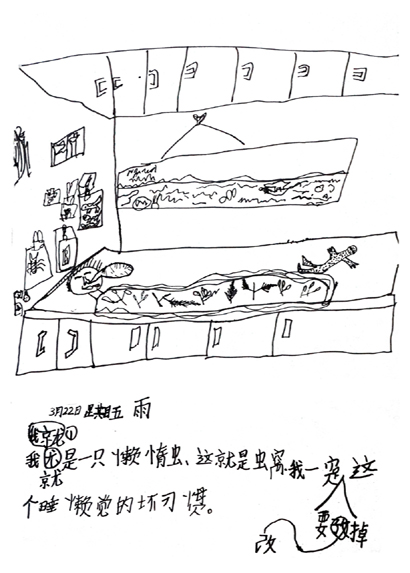 3月22日 星期五 雨
我是一只懒惰虫、这就是虫窝我一定这
就
个睡懒觉的坏习惯。
要改掉
改